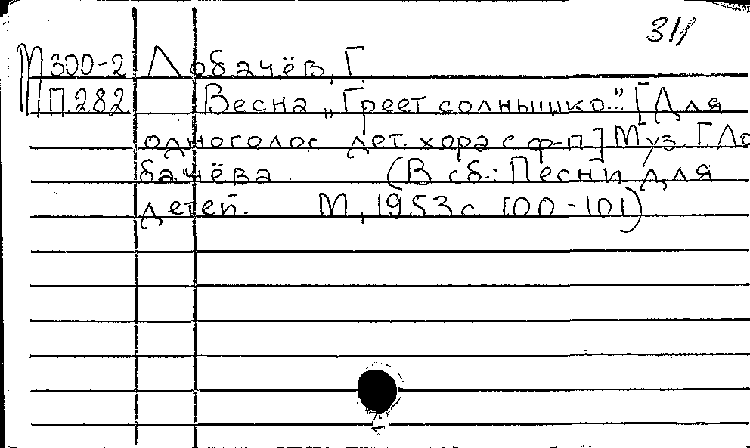 311
М300-2 Лобачёв, Г.
П282 Весна „Греет солнышко.." [Для
одноголос дет. хора с ф-п.] Муз. Г. Ло
бачёва. (В сб.: Песни для
детей. М., 1953 с. 100-101)